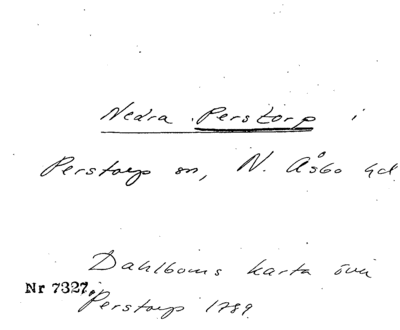 Nedra Perstorp i
Perstorp sn, N. Åsbo hd
Dahlboms karta över
Nr 7327.
Perstorp 1789